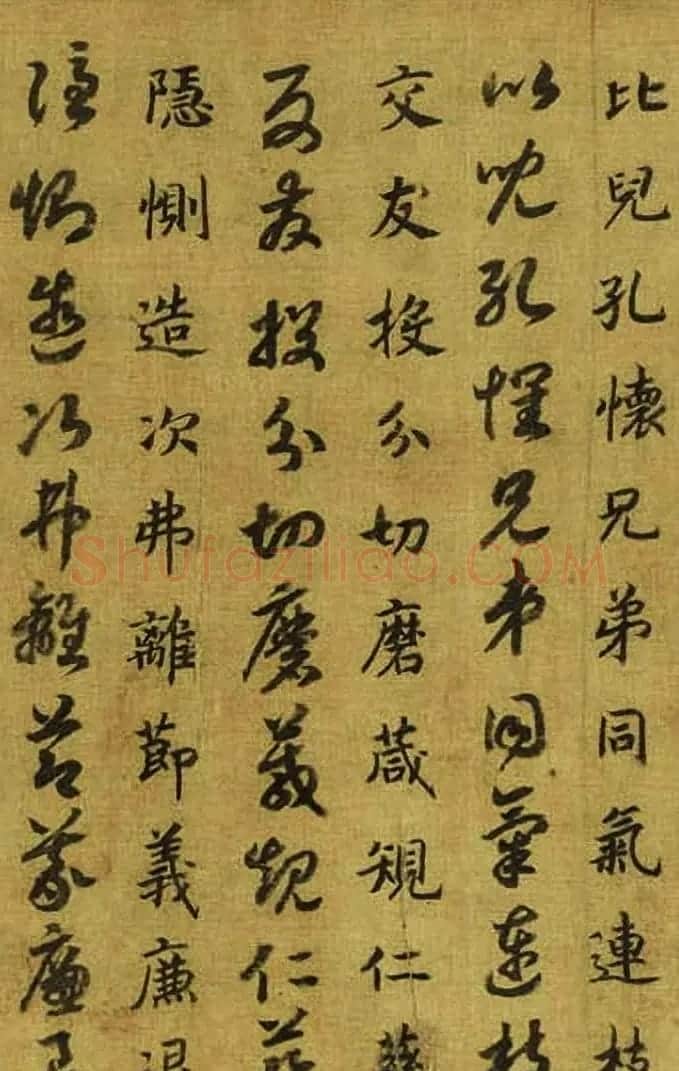 比兒孔懷兄弟同氣連枝
比兒孔懷兄弟同氣連枝
交友投分切磨葴規仁慈
交友投分切磨葴規仁慈
隱惻造次弗離節義廉退
隱惻造次弗離節義廉
Shufaziliao.COM